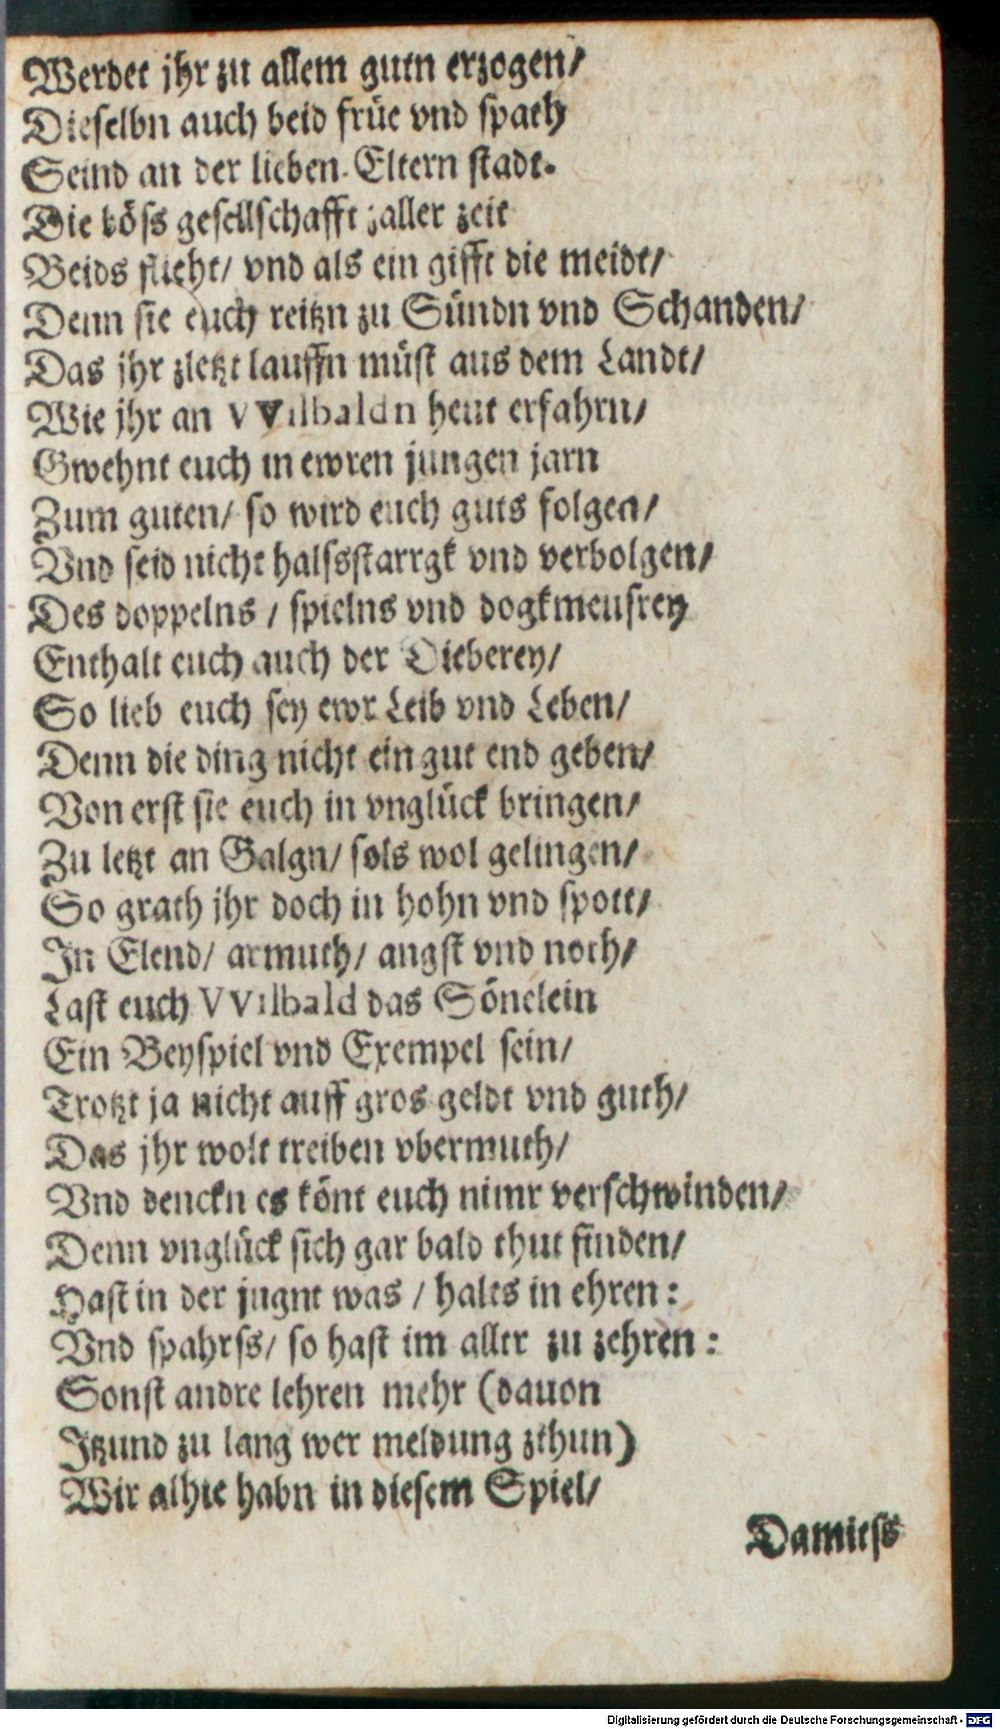 Werdet jhr zu allem gutn erzogen/
Dieselbn auch beid früe vnd spath
Seind an der lieben Eltern stadt.
Die böss gesellschafft zaller zeit
Beids flieht/ vnd als ein gifft die meidt/
Denn sie euch reitzn zu Sündn vnd Schanden/
Das jhr zletzt lauffn müst aus dem Landt/
Wie jhr an VVilbaldn heut erfahrn/
Gwehnt euch in ewren jungen jarn
Zum guten/ so wird euch guts folgen/
Vnd seid nicht halssstarrgk vnd verbolgen/
Des doppelns / spielns vnd dogkmeusrey
Enthalt euch auch der Dieberey/
So lieb euch sey ewr Leib vnd Leben/
Denn die ding nicht ein gut end geben/
Von erst sie euch in vnglück bringen/
Zu letzt an Galgn/ sols wol gelingen/
So grath jhr doch in hohn vnd spott/
In Elend/ armuth/ angst vnd noth/
Last euch VVilbald das Sönelein
Ein Beyspiel vnd Exempel sein/
Trotzt ja nicht auff gros geldt vnd guth/
Das jhr wolt treiben vbermuth/
Vnd denckn es könt euch nimr verschwinden/
Denn vnglück sich gar bald thut finden/
Hast in der jugnt was / halts in ehren:
Vnd spahrss/ so hast im alter zu zehren:
Sonst andre lehren mehr (dauon
Itzund zu lang wer meldung zthun)
Wir alhie habn in diesem Spiel/
Damitss
Digitalisierung gefördert durch die Deutsche Forschungsgemeinschaft - DFG